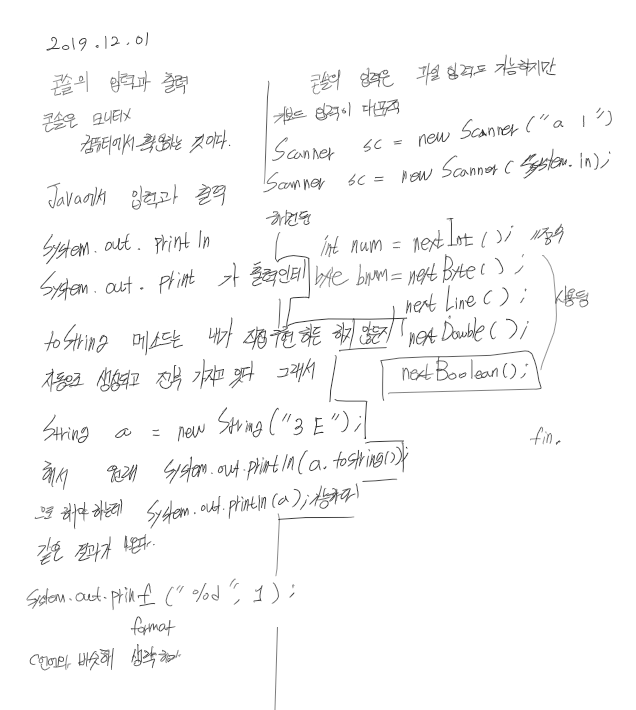 2019.12.01
콘솔의 입력과 출력
콘솔은 모니터X
컴퓨터에서 확인하는 것이다.
Java에서 입력과 출력
System.out.println
System.out.print 가 출력인데
toString 메소드는 내가 직접구현 하든 하지 않든지
자동으로 생성되고 전부 가지고 있다 그래서
String a = new String("3 E");
해서 원래 System.out.println(a.toString());
으로 해야 하는데 System.out.println(a); 가능하다
같은 결과가 나온다.
System.out.printf ("%d", 1);
format
C언어와 비슷해 생각하자
콘솔의 입력은 파일 입력도 가능하지만
키보드 입력이 대표적
Scanner sc = new Scanner("a 1")
Scanner sc = new Scanner(System.in);
int num = nextInt(); //정수
byte bnum = nextByte();
nextLine();
nextDouble();
nextBoolean();
사용등
fin.